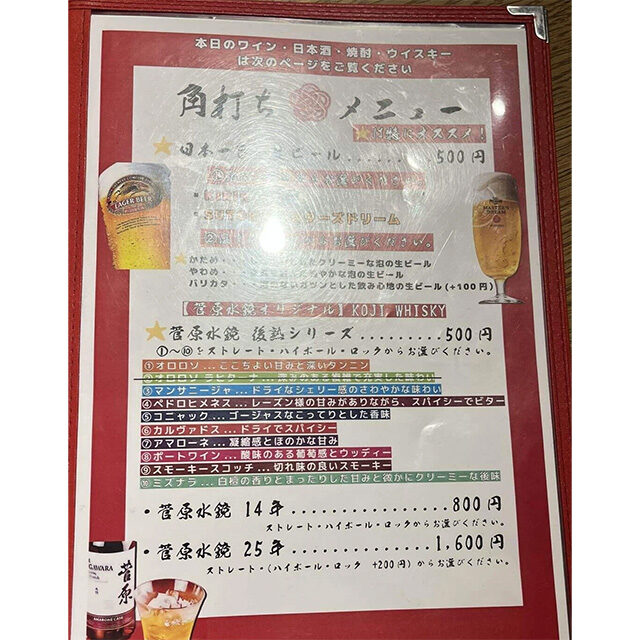 本日のワイン・日本酒・焼酎・ウイスキー
は次のページをご覧ください
角打ち メニュー
オススメ!
ビール.........500円
LAGER BEER
MASTER'S DREAM
ーズドリーム
びください。
かため・ クリーミーな泡の生ビール
やわめ・ やかな泡の生ビール
バリカタ ガツンとした飲み心地の生ビール(+100円)
KOJI WHISKY
菅原水鏡 後熟シリーズ..........500円
①〜⑩をストレート・ハイボール・ロックからお選びください。
①オロロソ...ここちよい甘みと深いタンニン
③マンサニージャ...ドライなシェリー感のさわやかな味わい
④ペドロヒメネス...レーズン様の甘みがありながら、スパイシーでビター
⑤コニャック...ゴージャスなこってりとした香味
⑥カルヴァドス...ドライでスパイシー
⑦アマローネ...凝縮感とほのかな甘み
⑧ポートワイン...酸味のある葡萄感とウッディー
⑨スモーキースコッチ...切れ味の良いスモーキー
⑩ミズナラ...白檀の香りとまったりした甘みと微かにクリーミーな後味
・菅原水鏡 14年................800円
ストレート・ハイボール・ロックからお選びください。
・菅原水鏡 25年..............1,600円
ストレート・(ハイボール・ロック +200円)からお選びください。
菅原
AMARONE CASK